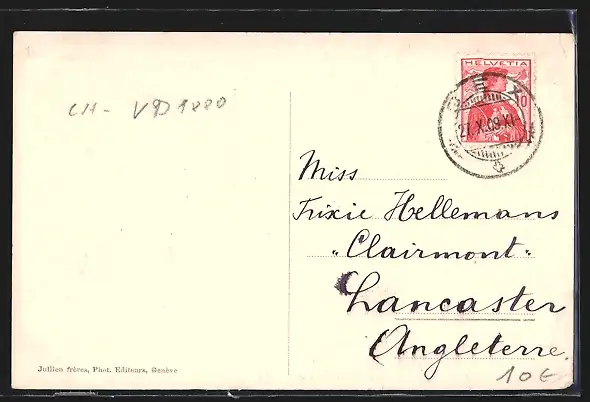 HELVETIA
10
BEX
27.X.08.XI
CH- VD1880
Miss
Trixie Hellemans
"Clairmont"
Lancaster
Angleterre.
Jullien frères, Phot. Editeurs, Genève
10€